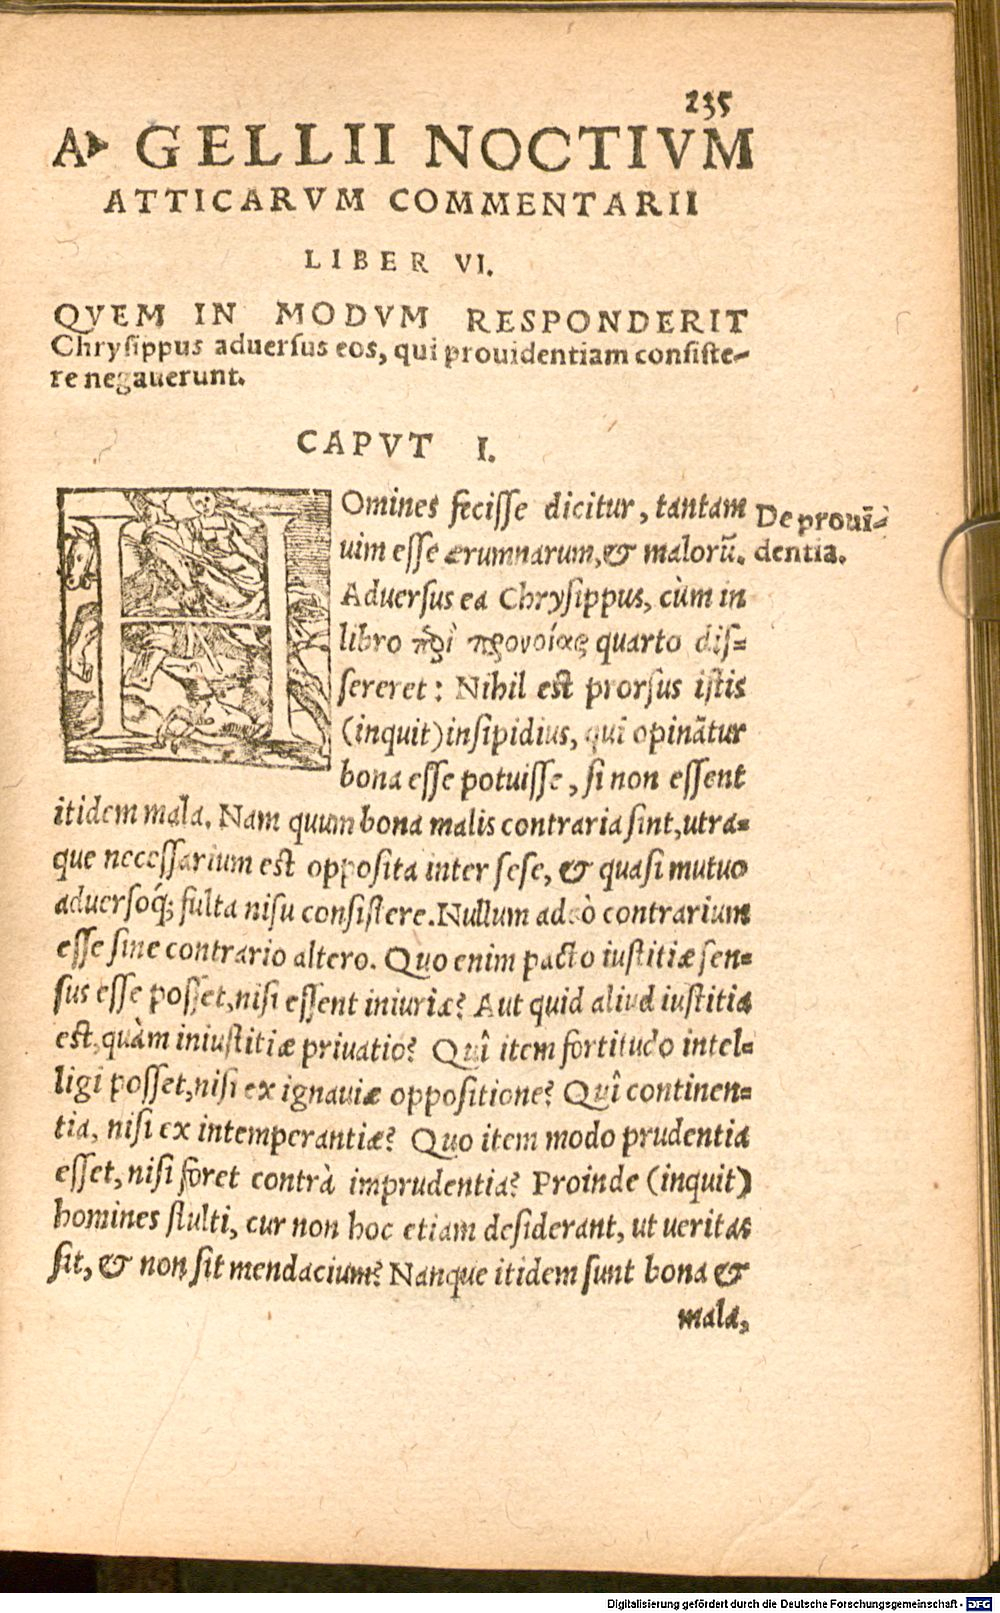 235
A. GELLII NOCTIVM
ATTICARVM COMMENTARII
LIBER VI.
QVEM IN MODVM RESPONDERIT
Chrysippus aduersus eos, qui prouidentiam consiste-
re negauerunt.
CAPVT I.
HOmines fecisse dicitur, tantam
uim esse ærumnarum, & malorũ.
De prouĩ-
dentia.
Aduersus ea Chrysippus, cùm in
libro πεϱὶ πϱονοίας quarto dis-
sereret: Nihil est prorsus istis
(inquit) insipidius, qui opinãtur
bona esse potuisse, si non essent
itidem mala. Nam quum bona malis contraria sint, utra-
que necessarium est opposita inter sese, & quasi mutuo
aduersoq́; fulta nisu consistere. Nullum adeò contrarium
esse sine contrario altero. Quo enim pacto iustitiæ sen-
sus esse posset, nisi essent iniuriæ? Aut quid aliud iustitia
est, quàm iniustitiæ priuatio? Quî item fortitudo intel-
ligi posset, nisi ex ignauiæ oppositione? Quî continen-
tia, nisi ex intemperantiæ? Quo item modo prudentia
esset, nisi foret contrà imprudentia? Proinde (inquit)
homines stulti, cur non hoc etiam desiderant, ut ueritas
sit, & non sit mendacium? Nanque itidem sunt bona &
mala,
Digitalisierung gefördert durch die Deutsche Forschungsgemeinschaft - DFG